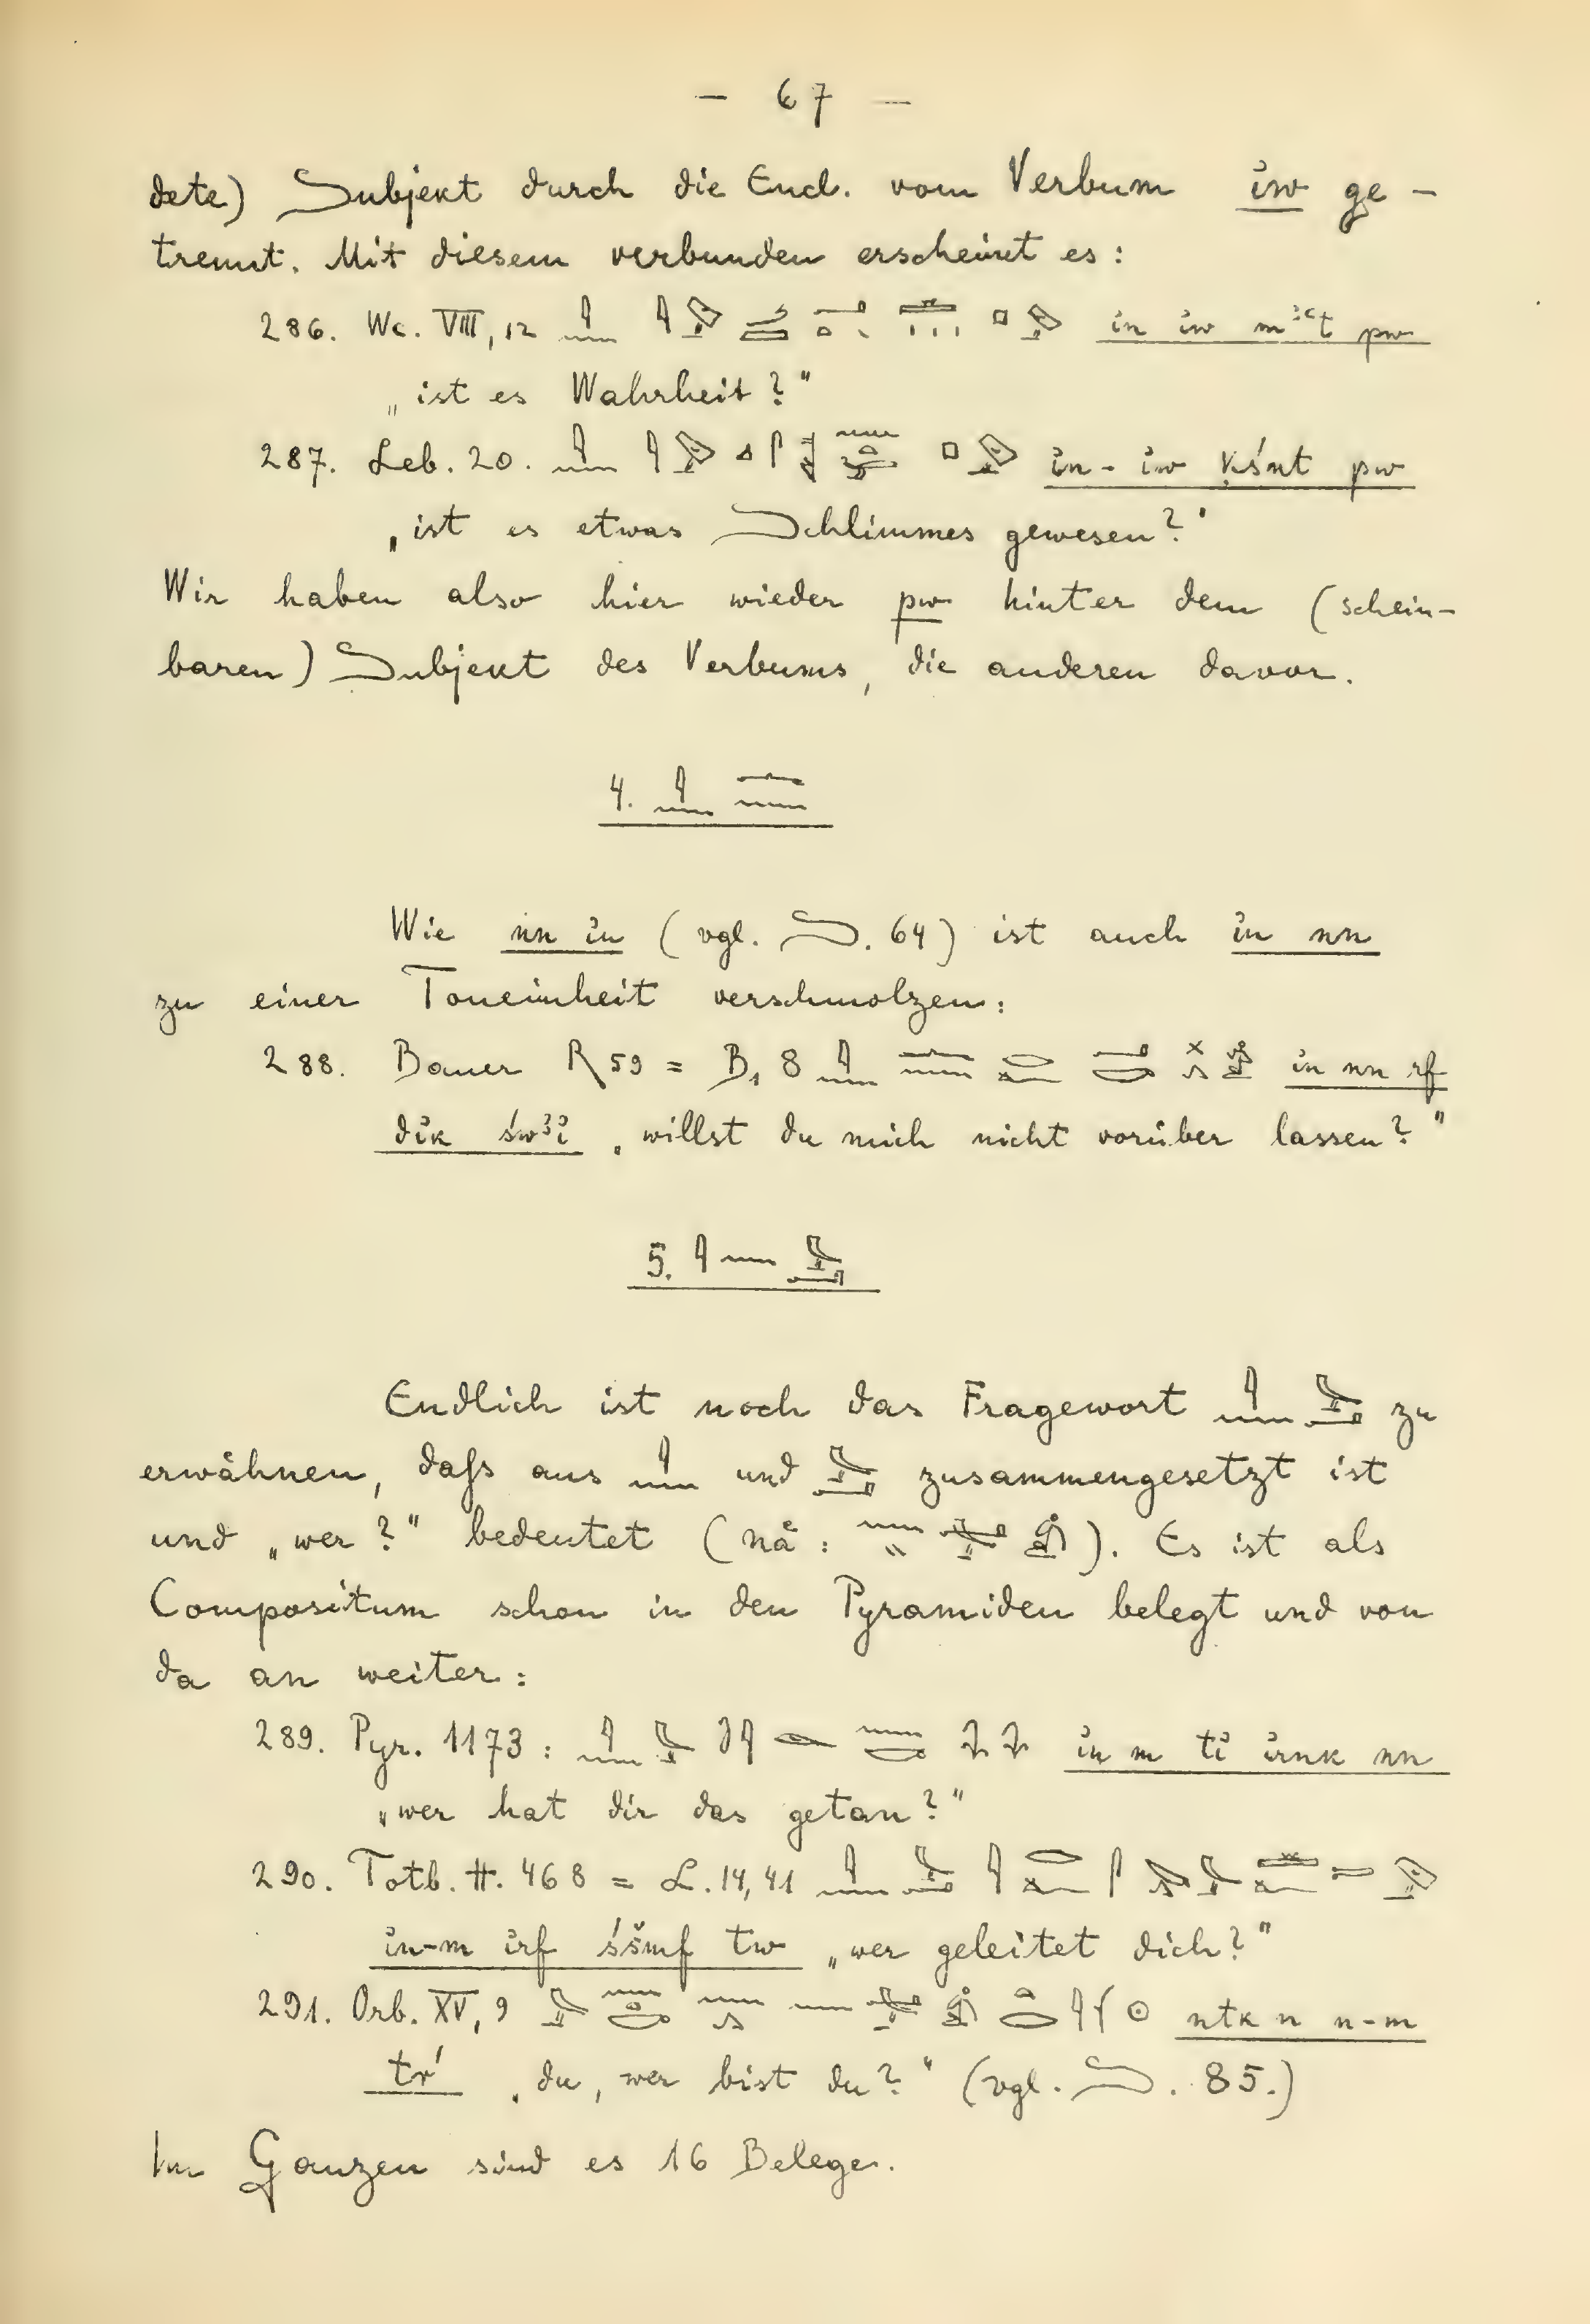 — 67 —
dete) Subjekt durch die Encl. vom Verbum ἰw ge-
trennt. Mit diesem verbunden erscheint es:
286. Wc. VIII, 12 in iw mꜣꜥt pw
„ist es Wahrheit?"
287. Leb. 20. in-iw ḳśnt pw
„ist es etwas Schlimmes gewesen?"
Wir haben also hier wieder pw hinter dem (schein-
baren) Subjekt des Verbums, die anderen davor.
4. 𓇋𓈖 𓂜𓈖
Wie nn in (vgl. S. 64) ist auch in nn
zu einer Toneinheit verschmolzen:
288. Bauer R 59 = B₁ 8 in nn rf
dik św3i „willst du mich nicht vorüber lassen?"
5. 𓇋𓈖𓅓𓂝
Endlich ist noch das Fragewort 𓇋𓈖𓅓𓂝 zu
erwähnen, daſs aus 𓇋𓈖 und 𓅓𓂝 zusammengesetzt ist
und „wer?" bedeutet (nä: ). Es ist als
Compositum schon in den Pyramiden belegt und von
da an weiter:
289. Pyr. 1173: in m ti irnk nn
„wer hat dir das getan?"
290. Totb. II. 468 = L. 14,41
in-m irf śšmf tw „wer geleitet dich?"
291. Orb. XV, 9 ntk n n-m
tr' „du, wer bist du?" (vgl. S. 85.)
Im Ganzen sind es 16 Belege.